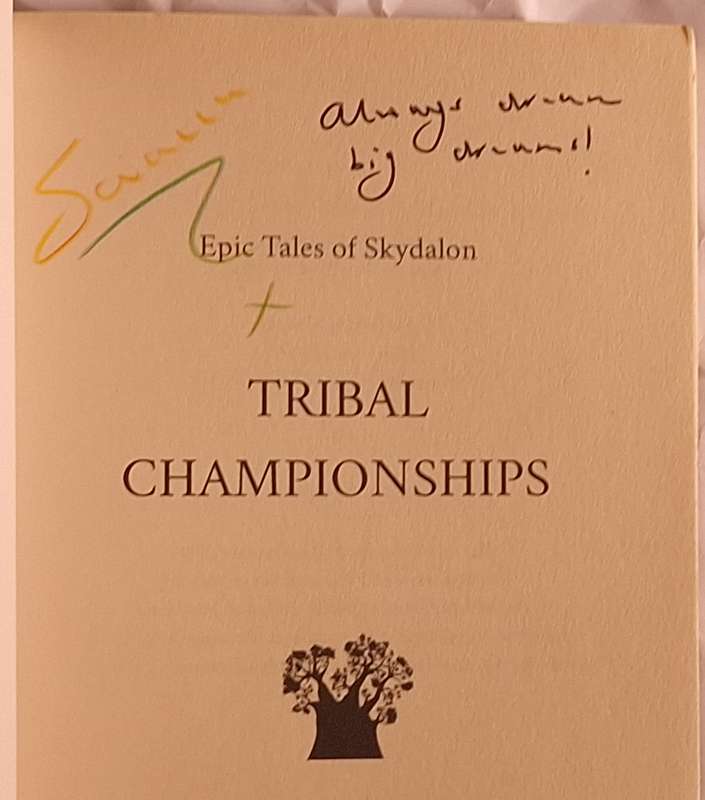 Always dream
big dreams!
Epic Tales of Skydalon
TRIBAL
CHAMPIONSHIPS